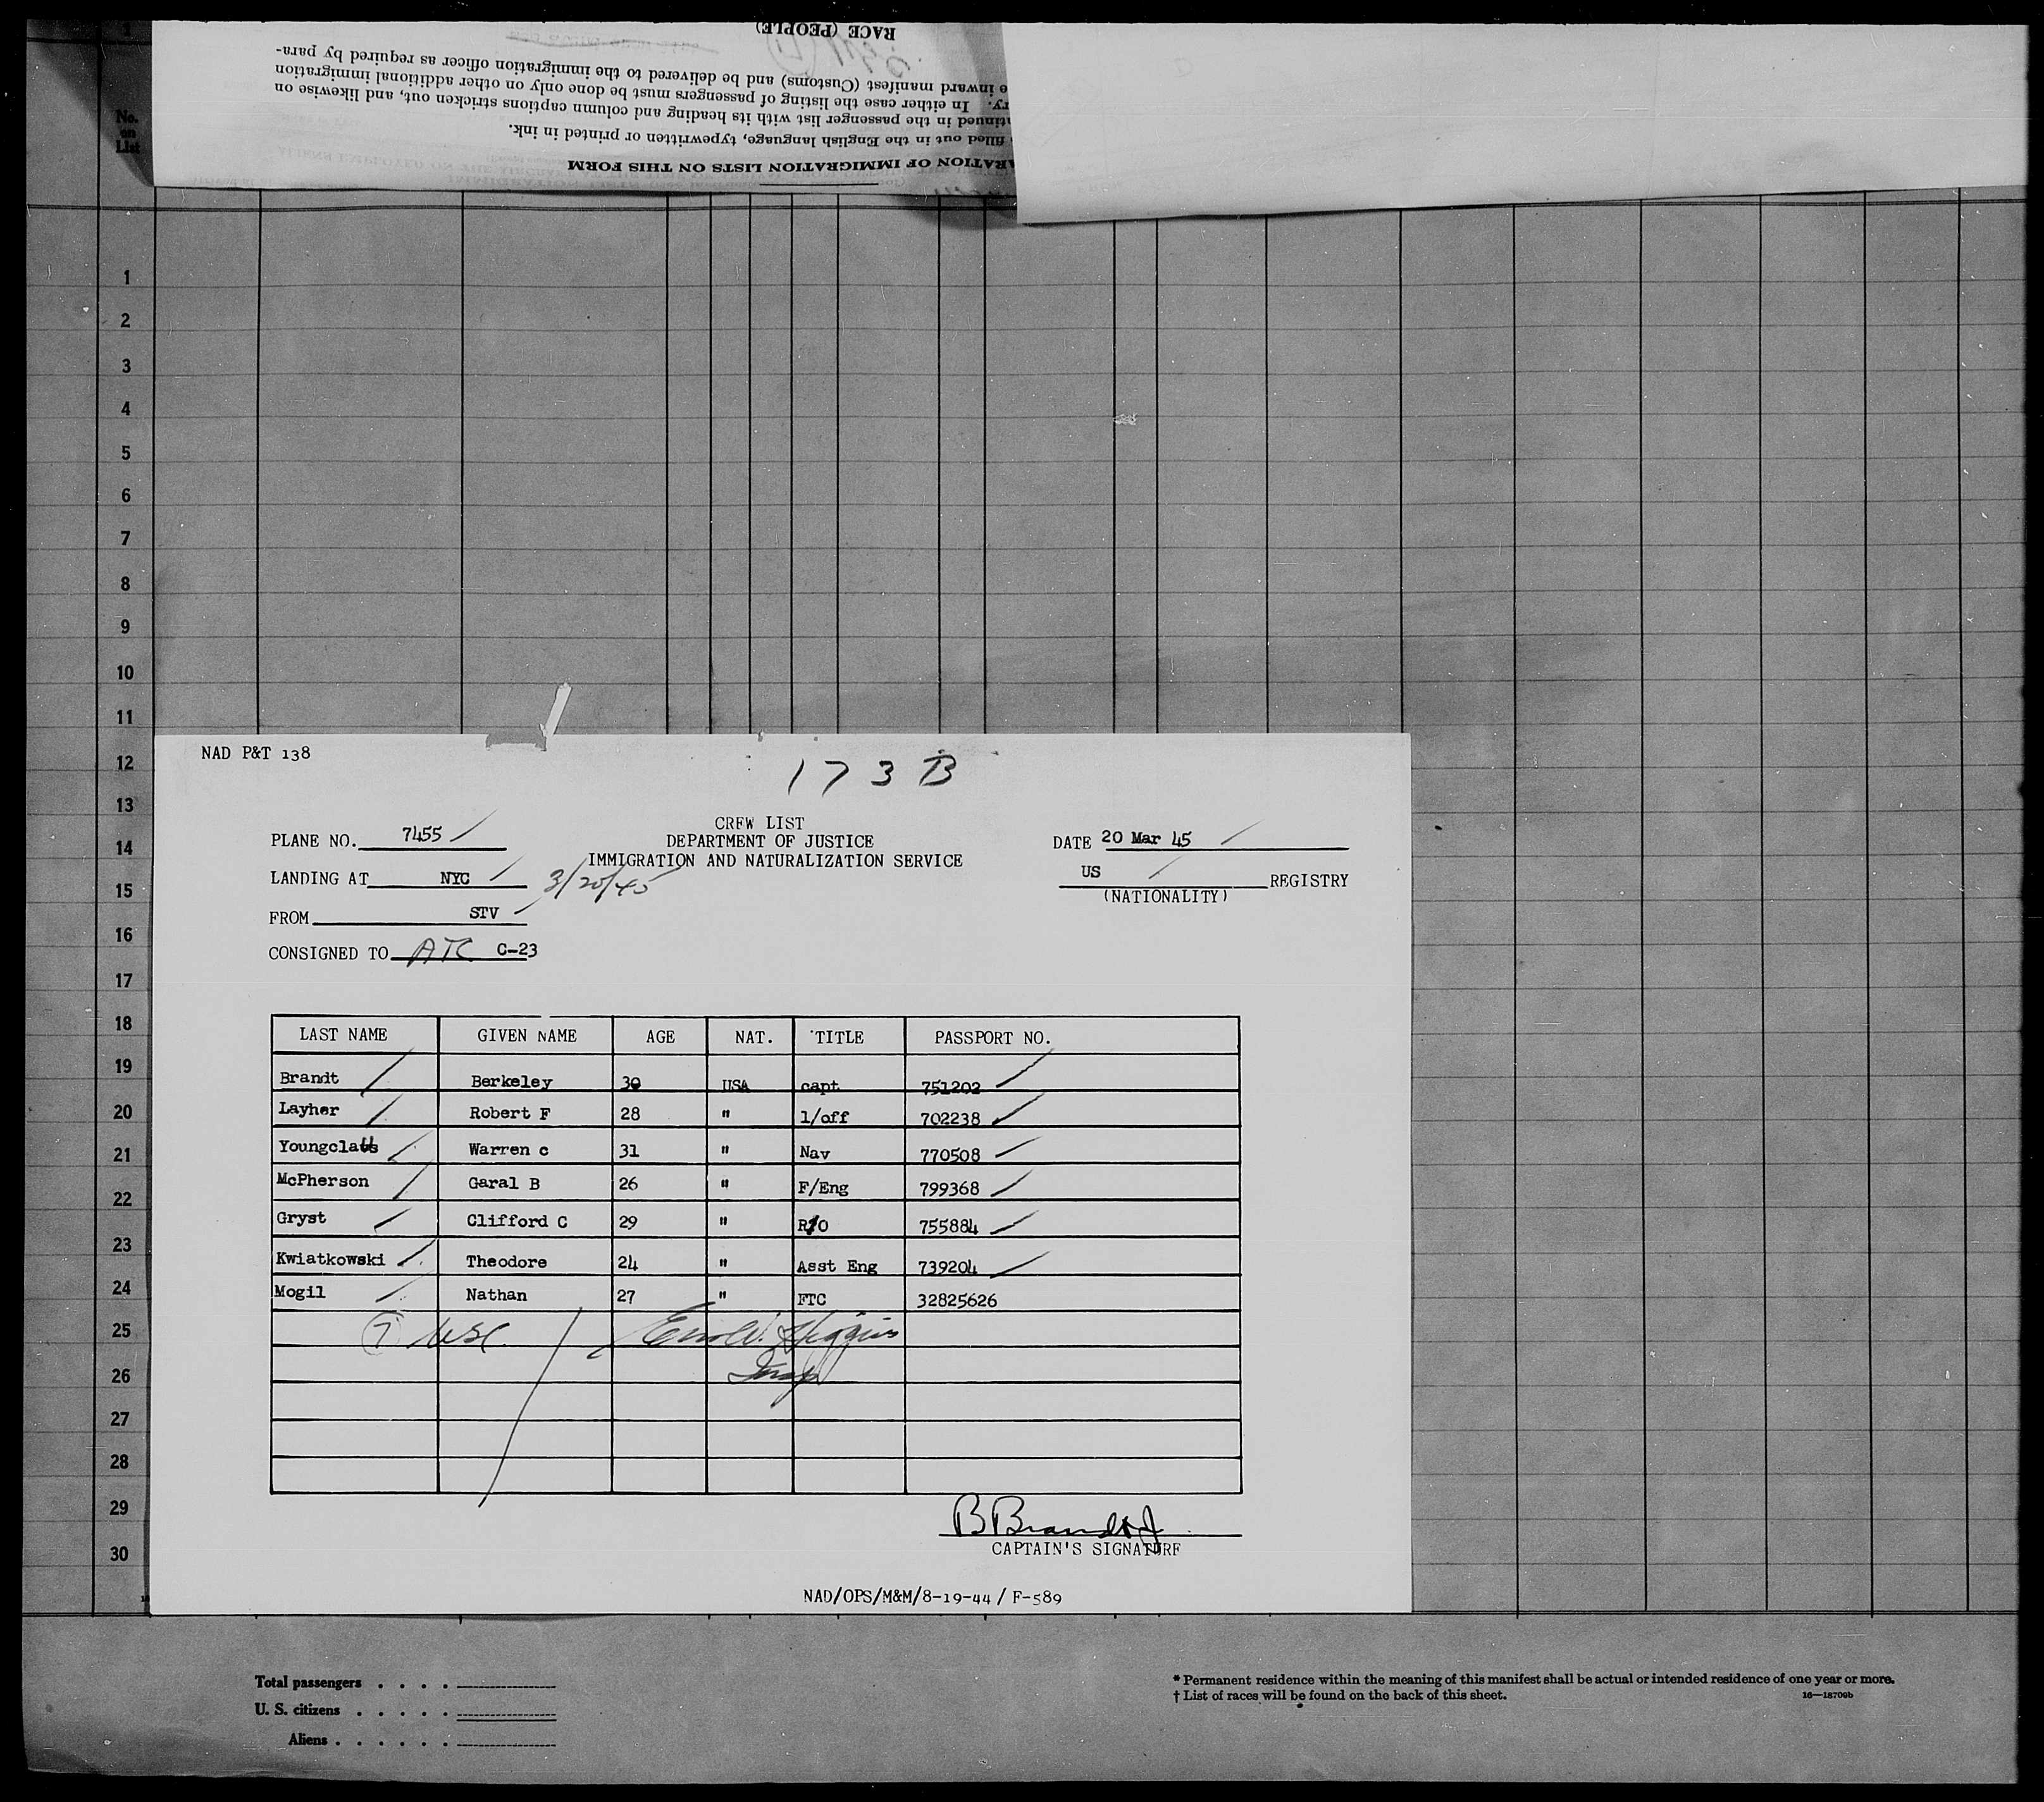 RACE (PEOPLE)
e inward manifest (Customs) and be delivered to the immigration officer as required by para-
ry. In either case the listing of passengers must be done only on other additional immigration
tinued in the passenger list with its heading and column captions stricken out, and likewise on
filled out in the English language, typewritten or printed in ink.
ARATION OF IMMIGRATION LISTS ON THIS FORM
No. on List
1
2
3
4
5
6
7
8
9
10
11
12
13
14
15
16
17
18
19
20
21
22
23
24
25
26
27
28
29
30
NAD P&T 138
173 B
CREW LIST
DEPARTMENT OF JUSTICE
IMMIGRATION AND NATURALIZATION SERVICE
PLANE NO. 7455
DATE 20 Mar 45
LANDING AT NYC 3/20/45
US REGISTRY
(NATIONALITY)
FROM STV
CONSIGNED TO ATC C-23
LAST NAME GIVEN NAME AGE NAT. TITLE PASSPORT NO.
Brandt Berkeley 30 USA capt 751202
Layher Robert F 28 " 1/off 702238
Youngclaus Warren c 31 " Nav 770508
McPherson Garal B 26 " F/Eng 799368
Gryst Clifford C 29 " R/O 755884
Kwiatkowski Theodore 24 " Asst Eng 739204
Mogil Nathan 27 " FTC 32825626
7 USC. Higgins
Insp
B Brandt Jr
CAPTAIN'S SIGNATURE
NAD/OPS/M&M/8-19-44 / F-589
Total passengers . . . .
U. S. citizens . . . . .
Aliens . . . . . .
* Permanent residence within the meaning of this manifest shall be actual or intended residence of one year or more.
† List of races will be found on the back of this sheet. 16—18709b